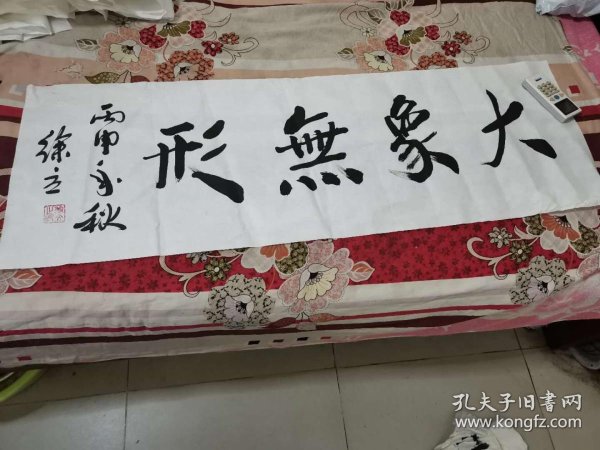 大象無形
丙申年秋
徐立
孔夫子旧書网
www.kongfz.com